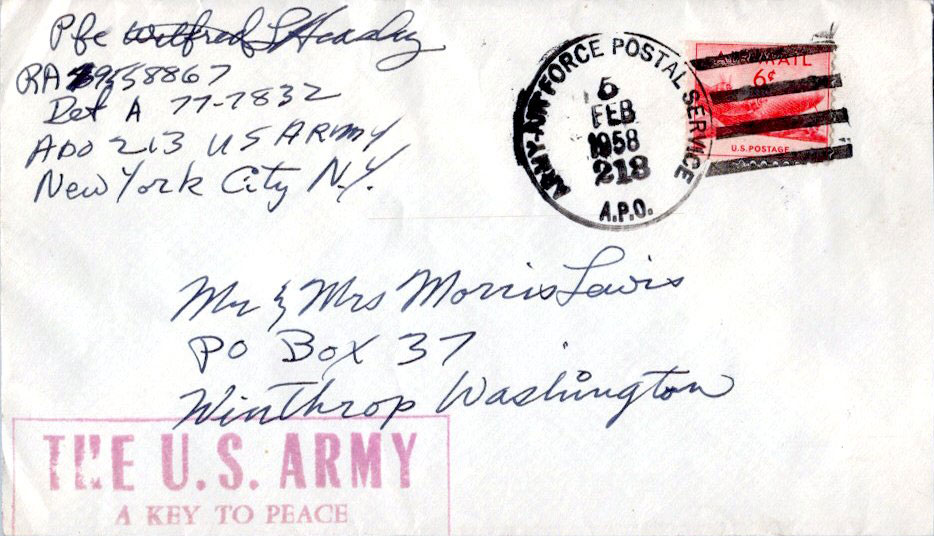 Pfc Wilfred L Headly
RA 19558867
Det A 77-7832
APO 213 US ARMY
New York City N.Y.
ARMY-AIR FORCE POSTAL SERVICE
5
FEB
1958
218
A.P.O.
AIR MAIL
6¢
U.S. POSTAGE
Mr & Mrs Morris Lewis
PO Box 37
Winthrop Washington
THE U.S. ARMY
A KEY TO PEACE